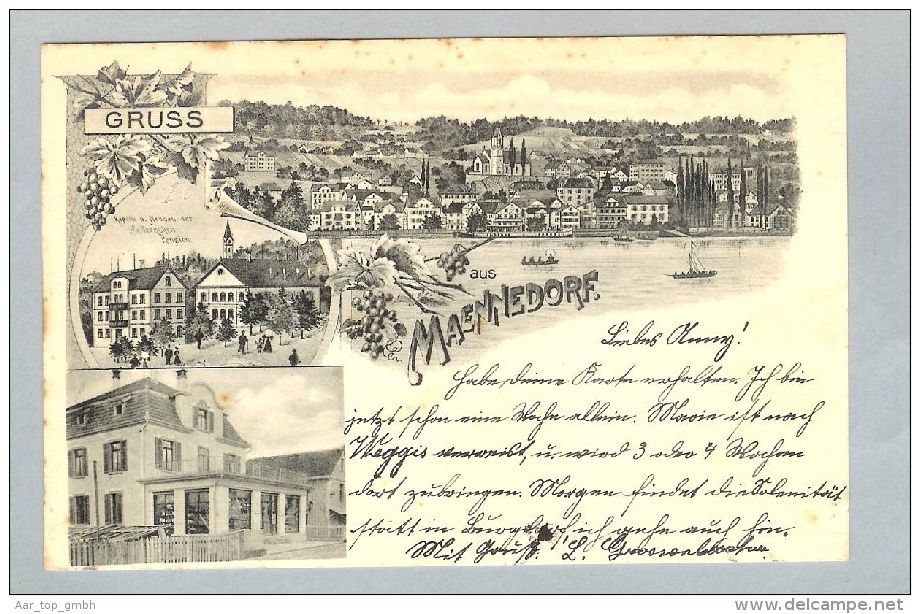 GRUSS
Kapelle u. der
Pension.
aus
MAENNEDORF.
Liebes Anny!
Habe deine Karte erhalten. Ich bin
jetzt schon eine Woche allein. Marie ist nach
Weggis verreist, u. wird 3 oder 4 Wochen
dort zubringen. Morgen findet die Solenität
statt in Burgdorf ich gehe auch hin.
Mit Gruß. L.
Aar_top_gmbh
www.delcampe.net